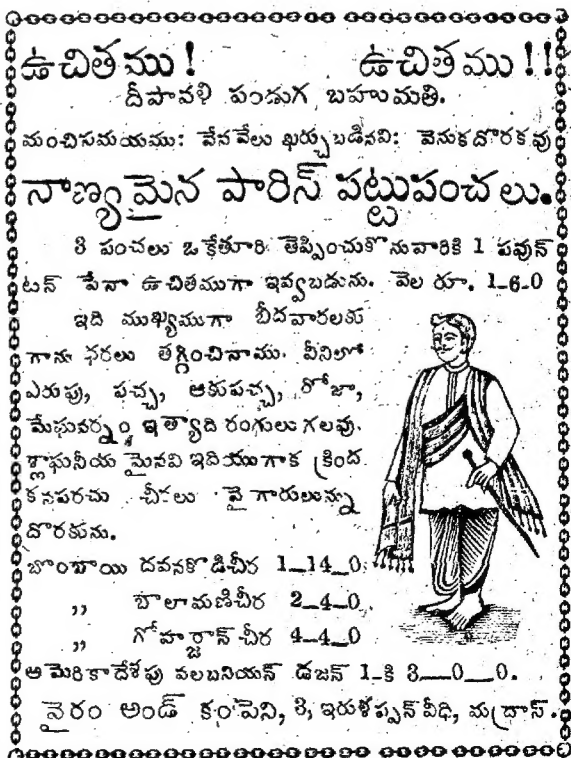 ఉచితము! ఉచితము!!
దీపావళి పండుగ బహుమతి.
మంచిసమయము: వేనవేలు ఖర్చుబడినవి: వెనుకదొరకవు
నాణ్యమైన పారిస్ పట్టుపంచలు.
3 పంచలు ఒకేతూరి తెప్పించుకొనువారికి 1 పవున్
టన్ పేనా ఉచితముగా ఇవ్వబడును. వెల రూ. 1-6-0
ఇది ముఖ్యముగా బీదవారలకు
గాను ధరలు తగ్గించినాము. వీనిలో
ఎరుపు, పచ్చ, ఆకుపచ్చ, రోజా,
మేఘవర్నం ఇత్యాది రంగులు గలవు.
శ్లాఘనీయ మైనవి ఇదియుగాక క్రింద
కనపరచు చీరలు పై గారులున్ను
దొరకును.
బొంబాయి దవనకొడిచీర 1_14_0
,, బాలామణిచీర 2_4_0
,, గోహర్జాన్ చీర 4_4_0
అమెరికాదేశపు వలబనియన్ డజన్ 1-కి 3__0__0.
వైరం అండ్ కంపెని, 8, ఇరుళప్పన్ వీధి, మద్రాస్.